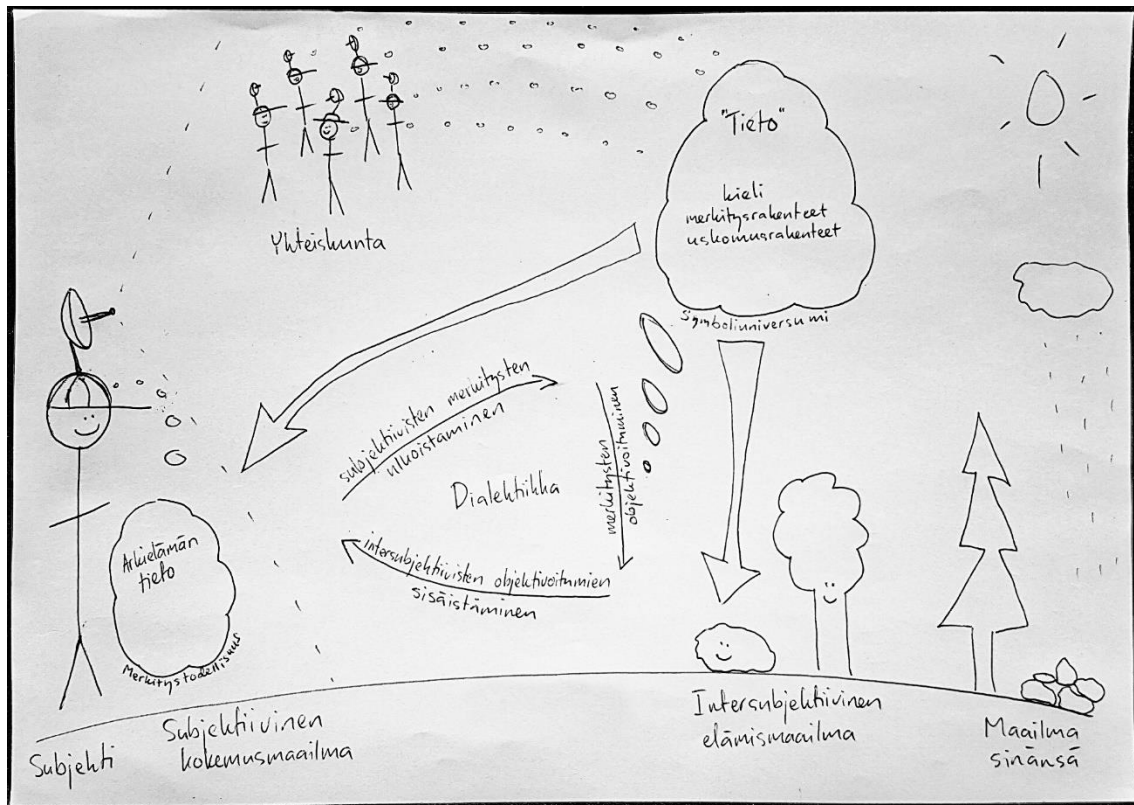 "Tieto"
kieli
merkitysrakenteet
uskomusrakenteet
Symboliuniversumi
Yhteiskunta
subjektiivisten merkitysten
ulkoistaminen
merkitysten
objektivoituminen
Dialektiikka
intersubjektiivisten objektivoitumien
sisäistäminen
Arkielämän
tieto
Merkitystodellisuus
Subjekti
Subjektiivinen
kokemusmaailma
Intersubjektiivinen
elämismaailma
Maailma
sinänsä